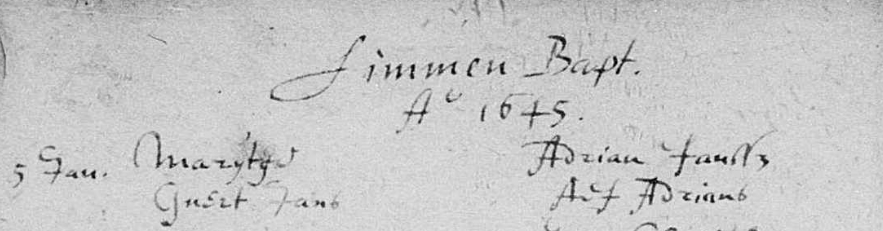 Limmen Bapt.
Ao 1645.
5 Jan. Marytge Adrian Janssz
Guert Jans Aef Adrians